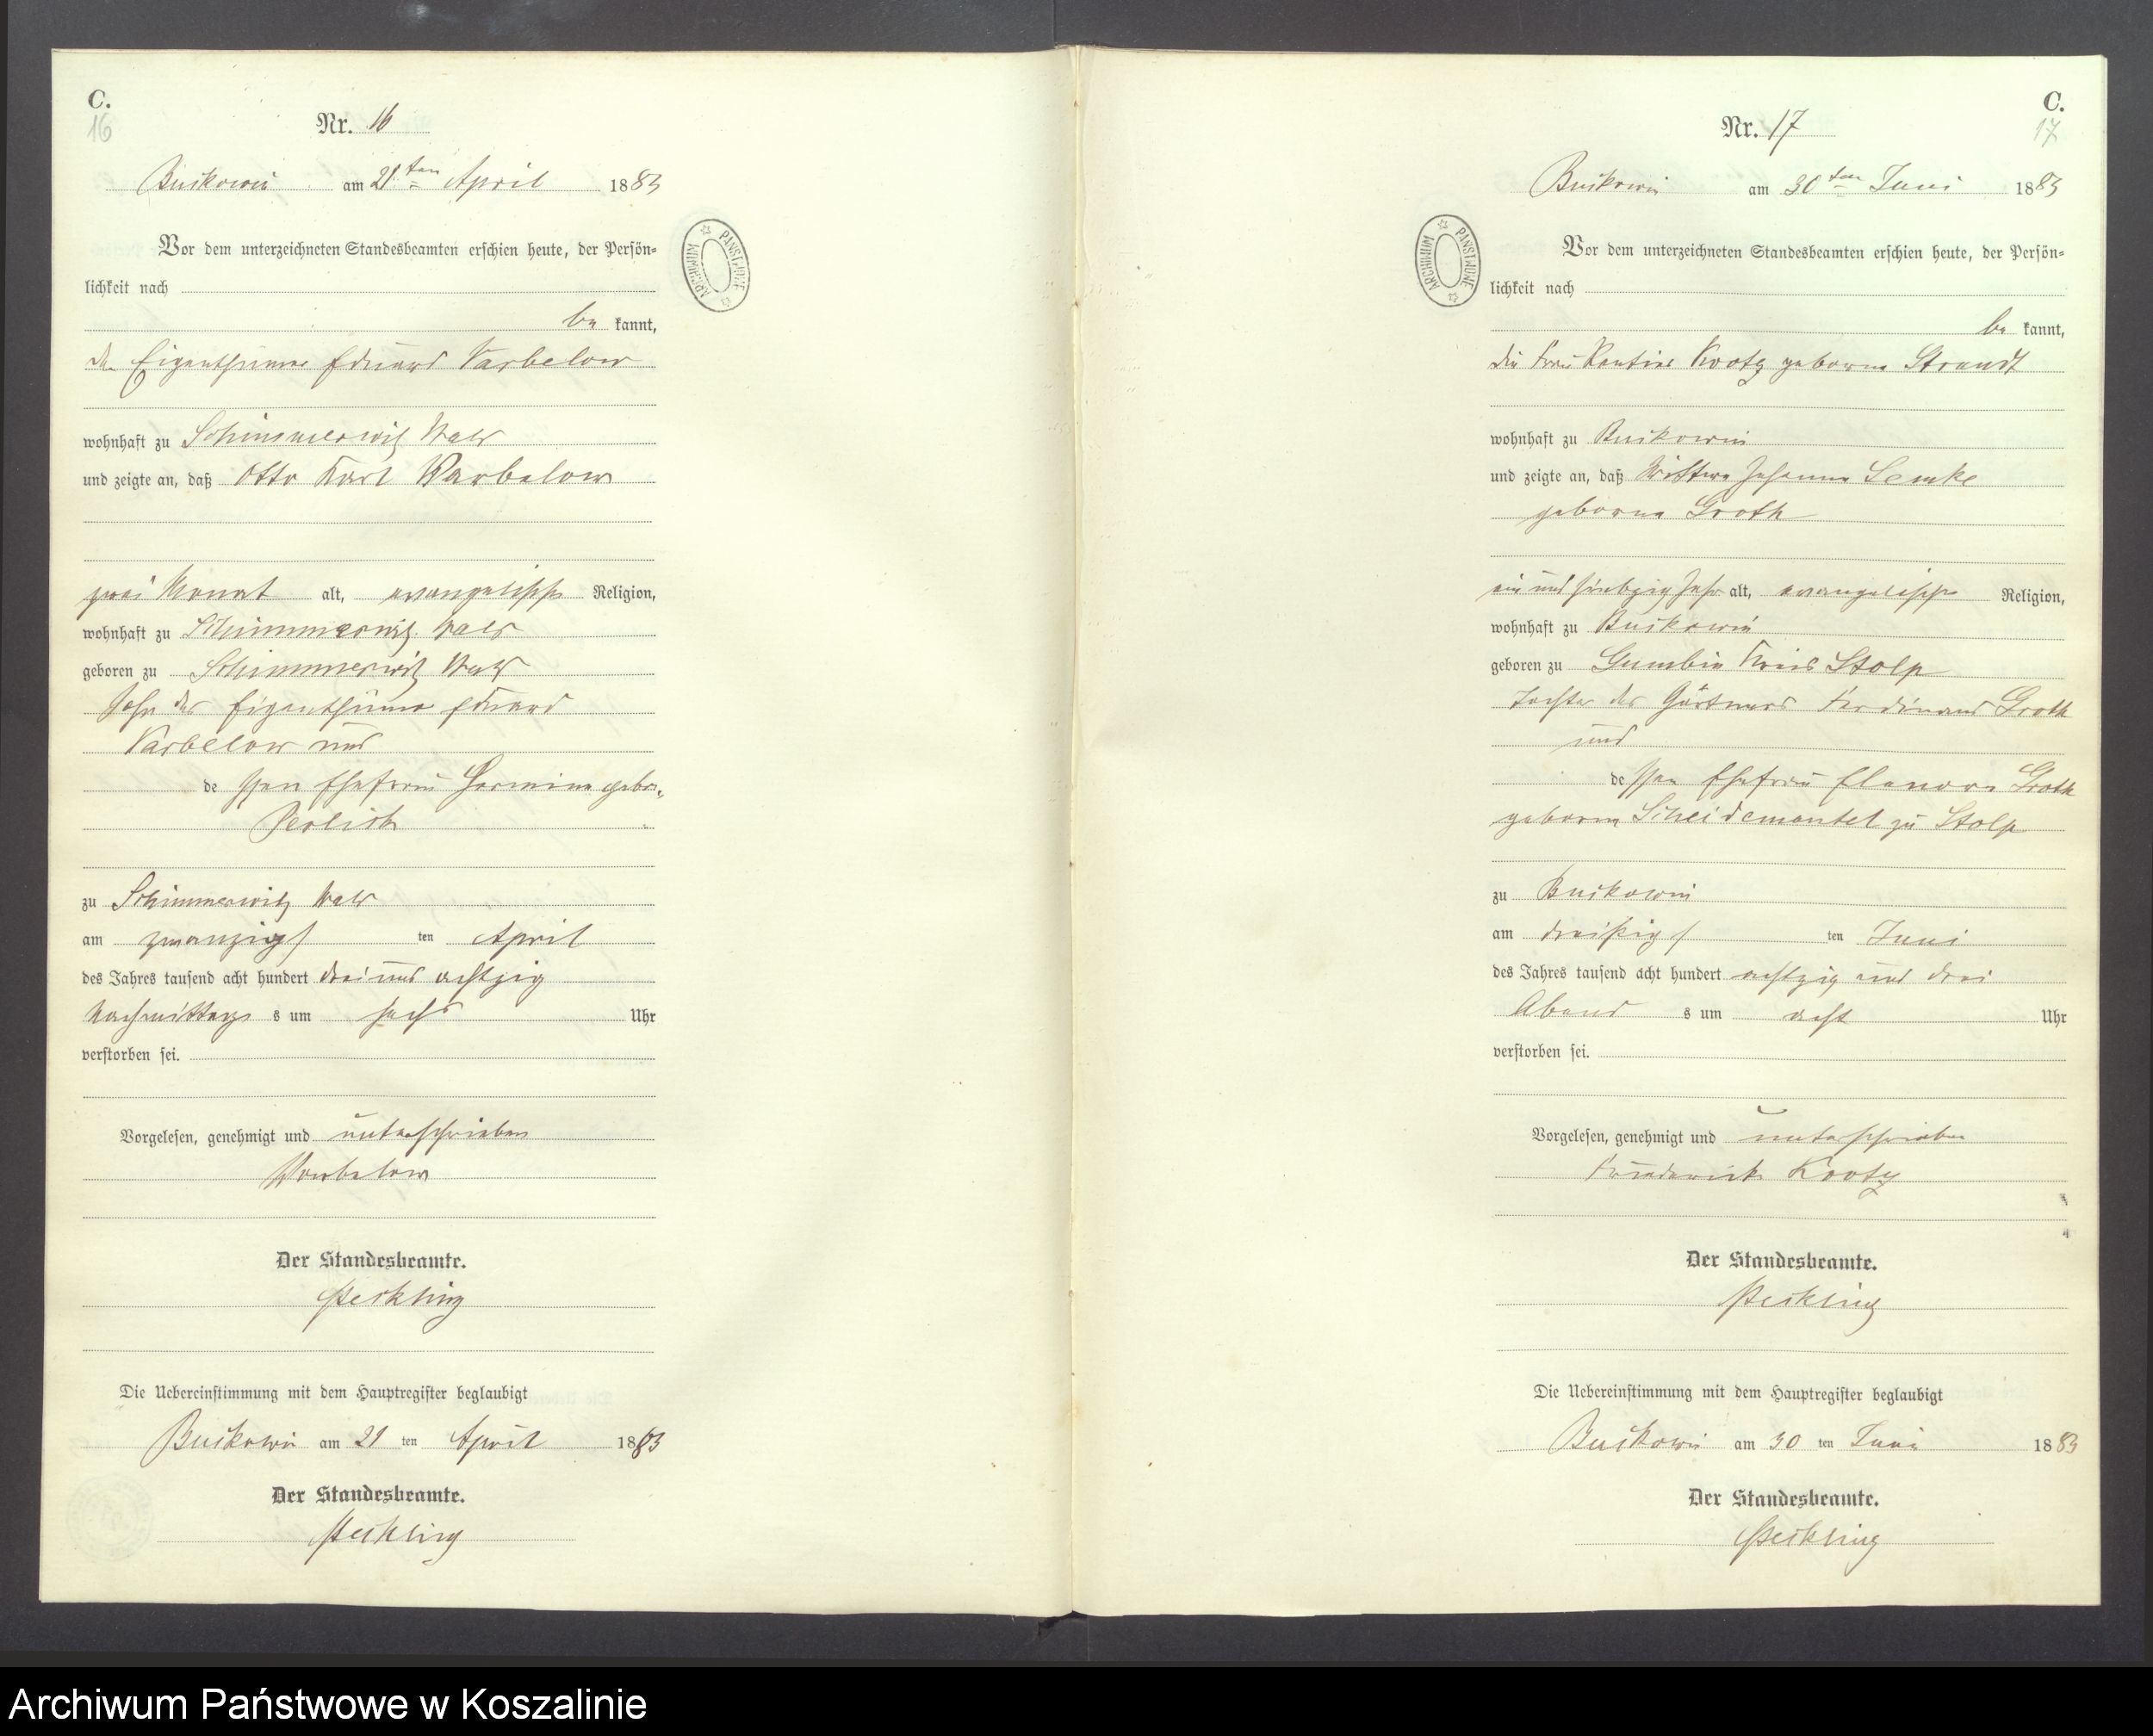 C.
16
Nr. 16
Buckowin am 21ten April 1883
Vor dem unterzeichneten Standesbeamten erschien heute, der Persön-
lichkeit nach
be kannt,
der Eigenthümer Eduard Varbelow
wohnhaft zu Schimmerwitz Wald
und zeigte an, daß Otto Karl Warbelow
zwei Monat alt, evangelischer Religion,
wohnhaft zu Schimmerwitz Wald
geboren zu Schimmerwitz Wald
Sohn des Eigenthümer Eduard
Varbelow und
de ssen Ehefrau Hermine gebor.
Perlick
zu Schimmerwitz Wald
am zwanzigs ten April
des Jahres tausend acht hundert drei und achtzig
Nachmittags s um sechs Uhr
verstorben sei.
Vorgelesen, genehmigt und unterschrieben
Warbelow
Der Standesbeamte.
Die Uebereinstimmung mit dem Hauptregister beglaubigt
Buckowin am 21 ten April 1883
Der Standesbeamte.
ARCHIWUM PAŃSTWOWE
C.
17
Nr. 17
Buckowin am 30ten Juni 1883
ARCHIWUM PAŃSTWOWE
Vor dem unterzeichneten Standesbeamten erschien heute, der Persön-
lichkeit nach
be kannt,
die Frau Rentier Krotz geborne Strandt
wohnhaft zu Buckowin
und zeigte an, daß Wittwe Johanna Lemke
geborne Groth
ein und siebzig Jahr alt, evangelischer Religion,
wohnhaft zu Buckowin
geboren zu Gumbin Kreis Stolp
Tochter des Gärtners Ferdinand Groth
und
de ssen Ehefrau Elenore Groth
geborne Scheidemantel zu Stolp
zu Buckowin
am dreißigs ten Juni
des Jahres tausend acht hundert achtzig und drei
Abend s um acht Uhr
verstorben sei.
Vorgelesen, genehmigt und unterschrieben
Friederick Krotz
Der Standesbeamte.
Die Uebereinstimmung mit dem Hauptregister beglaubigt
Buckowin am 30 ten Juni 1883
Der Standesbeamte.
Archiwum Państwowe w Koszalinie